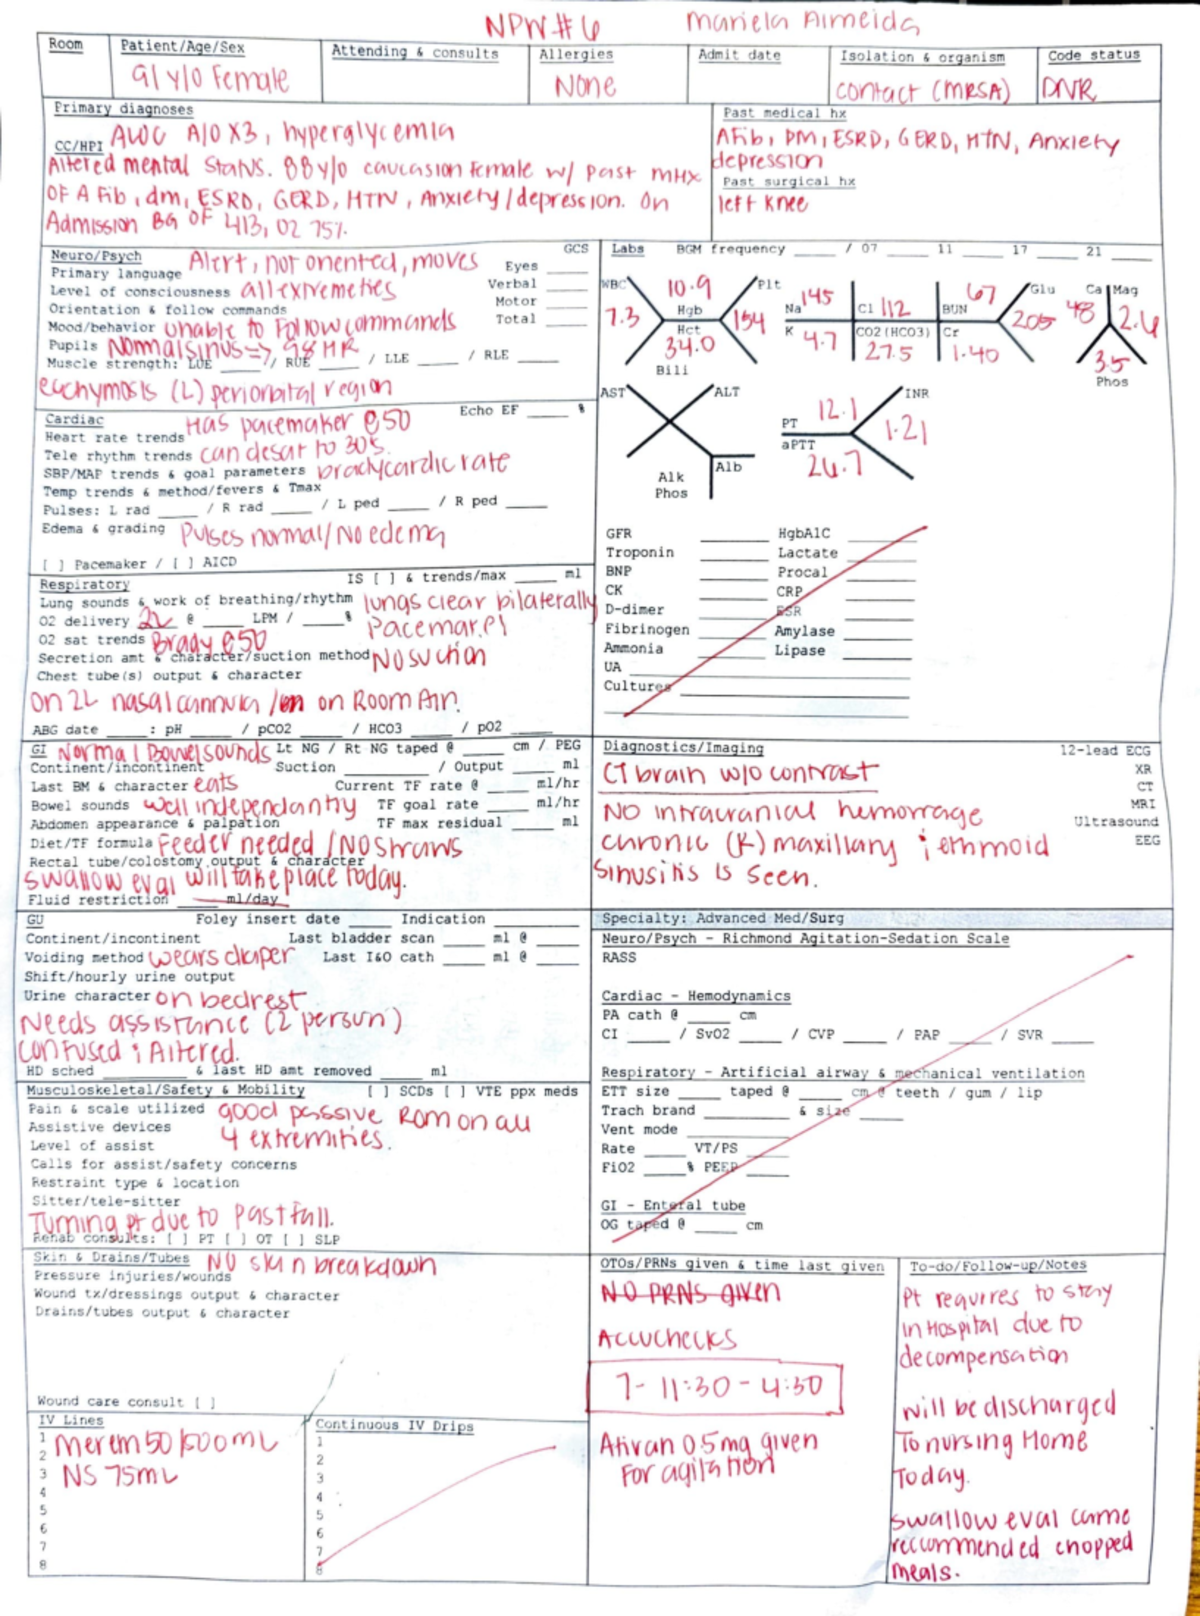 NPW#6 Mariela Almeida
Room Patient/Age/Sex Attending & consults Allergies Admit date Isolation & organism Code status
91 y/o Female None contact (MRSA) DNR
Primary diagnoses
CC/HPI ALOC A/O X3, hyperglycemia
Altered mental Status. 88 y/o caucasion Female w/ past mHx
OF A Fib, dm, ESRD, GERD, HTN, Anxiety/depression. On
Admission BG OF 413, O2 75%.
Past medical hx
AFib, DM, ESRD, GERD, HTN, Anxiety
depression
Past surgical hx
left Knee
Neuro/Psych Alert, not oriented, moves GCS
Primary language Eyes ____
Level of consciousness all extremeties Verbal ____
Orientation & follow commands Motor ____
Mood/behavior unable to Follow commands Total ____
Pupils Normal sinus => 98 HR
Muscle strength: LUE ____ // RUE ____ / LLE ____ / RLE ____
ecchymosis (L) periorbital region
Cardiac Has pacemaker @50 Echo EF ____ %
Heart rate trends
Tele rhythm trends can desat to 30s.
SBP/MAP trends & goal parameters bradycardic rate
Temp trends & method/fevers & Tmax
Pulses: L rad ____ / R rad ____ / L ped ____ / R ped ____
Edema & grading Pulses normal/No edema
[ ] Pacemaker / [ ] AICD
Respiratory IS [ ] & trends/max ____ ml
Lung sounds & work of breathing/rhythm lungs clear bilaterally
O2 delivery 2L @ ____ LPM / ____ % Pacemar.
O2 sat trends Brady @50
Secretion amt & character/suction method No suction
Chest tube(s) output & character
on 2L nasal cannula / on Room Air.
ABG date ____: pH ____ / pCO2 ____ / HCO3 ____ / pO2 ____
GI Normal Bowel sounds Lt NG / Rt NG taped @ ____ cm / PEG
Continent/incontinent Suction ____ / Output ____ ml
Last BM & character eats Current TF rate @ ____ ml/hr
Bowel sounds well independantry TF goal rate ____ ml/hr
Abdomen appearance & palpation TF max residual ____ ml
Diet/TF formula Feeder needed / NO Straws
Rectal tube/colostomy output & character
swallow eval will take place today.
Fluid restriction ____ ml/day
GU Foley insert date ____ Indication ____
Continent/incontinent Last bladder scan ____ ml @ ____
Voiding method wears diaper Last I&O cath ____ ml @ ____
Shift/hourly urine output
Urine character on bedrest
Needs assistance (2 person)
confused & Altered.
HD sched ____ & last HD amt removed ____ ml
Musculoskeletal/Safety & Mobility [ ] SCDs [ ] VTE ppx meds
Pain & scale utilized good passive Rom on all
Assistive devices 4 extremities.
Level of assist
Calls for assist/safety concerns
Restraint type & location
Sitter/tele-sitter
Turning pt due to past fall.
Rehab consults: [ ] PT [ ] OT [ ] SLP
Skin & Drains/Tubes No skin breakdown
Pressure injuries/wounds
Wound tx/dressings output & character
Drains/tubes output & character
Wound care consult [ ]
IV Lines
1 Merem 50/500mL
2
3 NS 75mL
4
5
6
7
8
Continuous IV Drips
1
2
3
4
5
6
7
8
Labs BGM frequency ____ / 07 ____ 11 ____ 17 ____ 21 ____
WBC 7.3 Hgb 10.9 Hct 34.0 Plt 154
Bili
Na 145 Cl 112 BUN 67 Glu 205
K 4.7 CO2(HCO3) 27.5 Cr 1.40
Ca 48 Mag 2.6 Phos 3.5
AST ALT
Alk Phos Alb
PT 12.1 INR 1.21
aPTT 26.7
GFR ____ HgbA1C ____
Troponin ____ Lactate ____
BNP ____ Procal ____
CK ____ CRP ____
D-dimer ____ ESR ____
Fibrinogen ____ Amylase ____
Ammonia ____ Lipase ____
UA ____
Cultures ____
Diagnostics/Imaging 12-lead ECG
CT brain w/o contrast XR
CT
NO intracranial hemorrage MRI
Ultrasound
chronic (R) maxillary & ethmoid EEG
sinusitis is seen.
Specialty: Advanced Med/Surg
Neuro/Psych - Richmond Agitation-Sedation Scale
RASS
Cardiac - Hemodynamics
PA cath @ ____ cm
CI ____ / SvO2 ____ / CVP ____ / PAP ____ / SVR ____
Respiratory - Artificial airway & mechanical ventilation
ETT size ____ taped @ ____ cm @ teeth / gum / lip
Trach brand ____ & size ____
Vent mode ____
Rate ____ VT/PS ____
FiO2 ____% PEEP ____
GI - Enteral tube
OG taped @ ____ cm
OTOs/PRNs given & time last given
NO PRNS given
Accuchecks
7- 11:30 - 4:30
Ativan 0.5mg given
For agitation
To-do/Follow-up/Notes
Pt requires to stay
in Hospital due to
decompensation
will be discharged
To nursing Home
Today.
swallow eval came
reccommended chopped
meals.